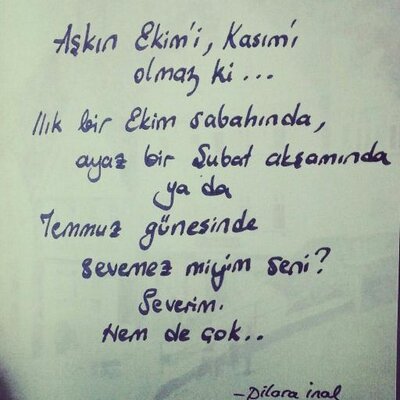 Aşkın Ekim'i, Kasım'ı
olmaz ki...
Ilık bir Ekim sabahında,
ayaz bir Şubat akşamında
ya da
Temmuz güneşinde
sevemez miyim seni?
Severim.
Hem de çok..
-Dilara İnal